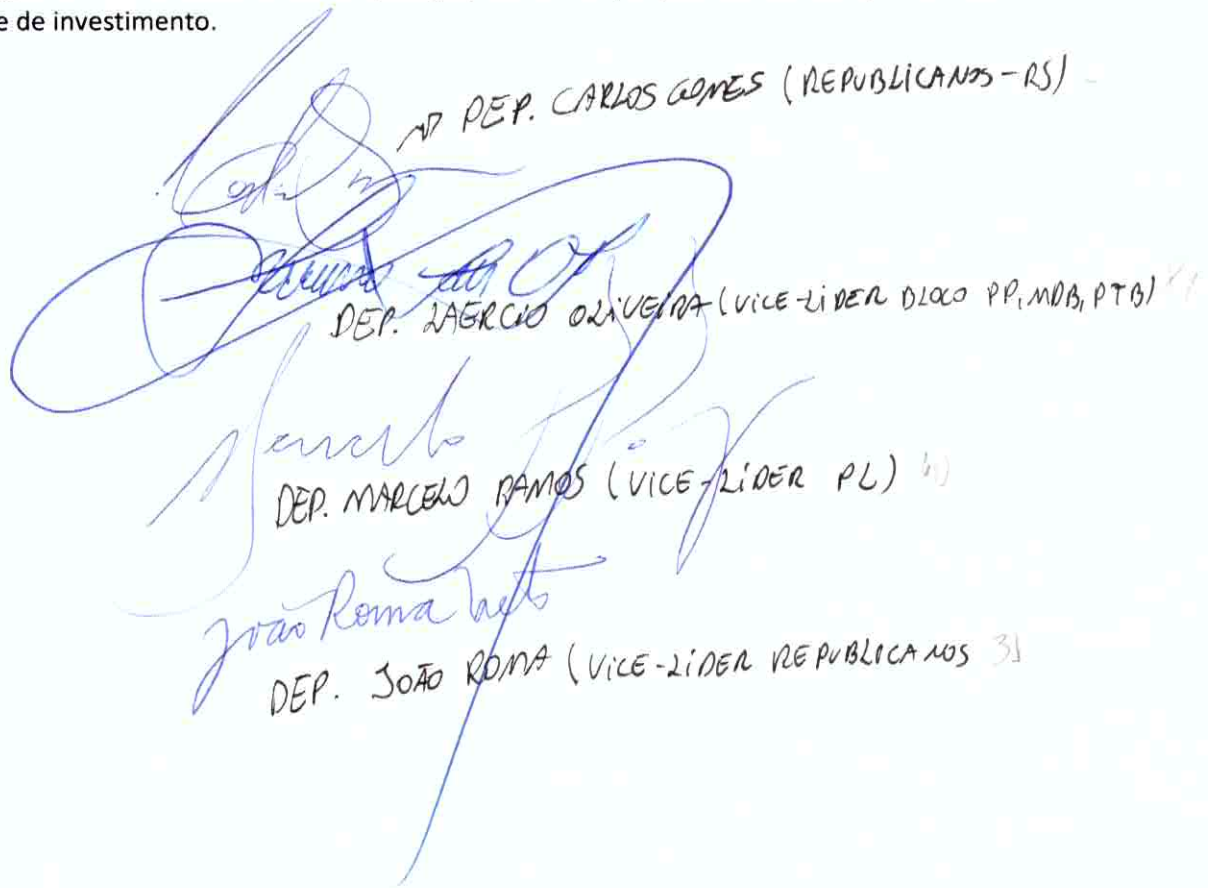 e de investimento.
DEP. CARLOS GOMES (REPUBLICANOS-RS)
DEP. LAERCIO OLIVEIRA (VICE-LÍDER BLOCO PP, MDB, PTB)
Marcelo
DEP. MARCELO RAMOS (VICE-LÍDER PL)
João Roma Neto
DEP. JOÃO ROMA (VICE-LÍDER REPUBLICANOS